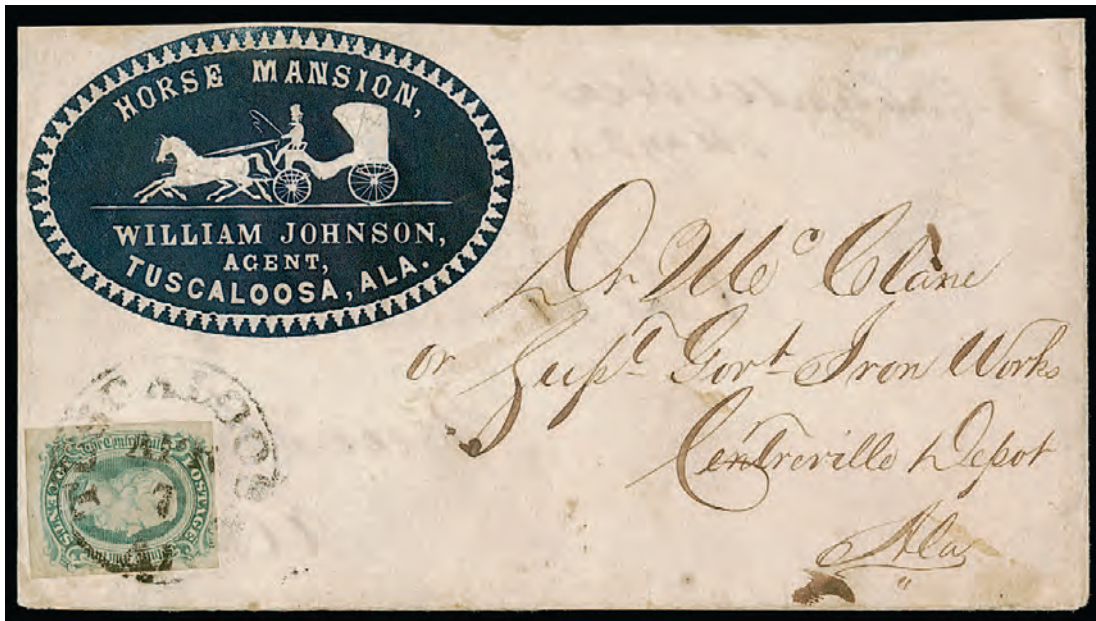 HORSE MANSION,
WILLIAM JOHNSON,
AGENT,
TUSCALOOSA, ALA.
Dr Mc Clane
or Supt Govt Iron Works
Centreville Depot
Ala
POSTAGE